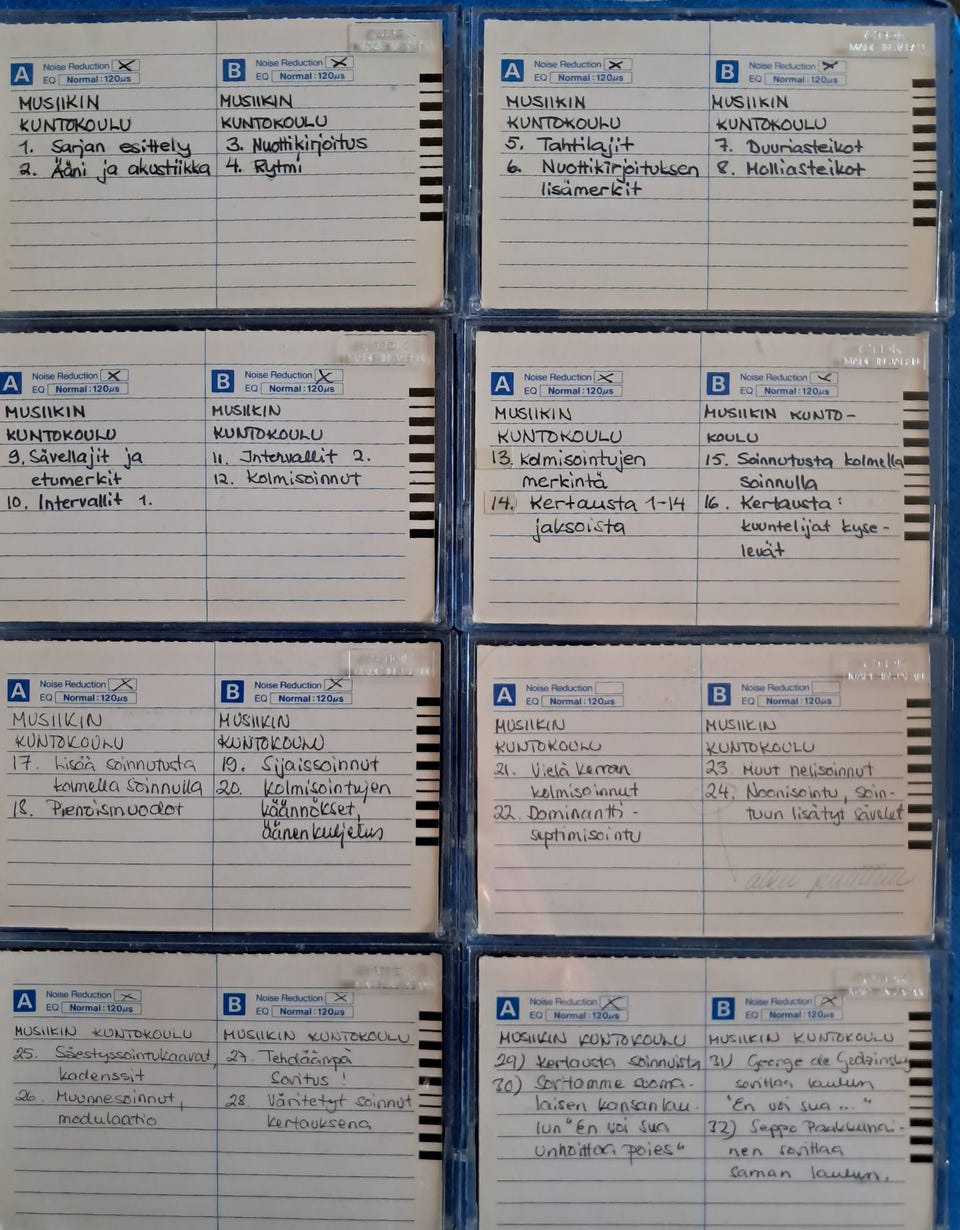 A Noise Reduction X
EQ Normal:120μs
MUSIIKIN
KUNTOKOULU
1. Sarjan esittely
2. Ääni ja akustiikka
B Noise Reduction X
EQ Normal:120μs
MUSIIKIN
KUNTOKOULU
3. Nuottikirjoitus
4. Rytmi
MADE IN JAPAN
A Noise Reduction X
EQ Normal:120μs
MUSIIKIN
KUNTOKOULU
5. Tahtilajit
6. Nuottikirjoituksen
lisämerkit
B Noise Reduction X
EQ Normal:120μs
MUSIIKIN
KUNTOKOULU
7. Duuriasteikot
8. Molliasteikot
A Noise Reduction X
EQ Normal:120μs
MUSIIKIN
KUNTOKOULU
9. Sävellajit ja
etumerkit
10. Intervallit 1.
B Noise Reduction X
EQ Normal:120μs
MUSIIKIN
KUNTOKOULU
11. Intervallit 2.
12. Kolmisoinnut
MADE IN JAPAN
A Noise Reduction X
EQ Normal:120μs
MUSIIKIN
KUNTOKOULU
13. Kolmisointujen
merkintä
14. Kertausta 1-14
jaksoista
B Noise Reduction X
EQ Normal:120μs
MUSIIKIN KUNTO-
KOULU
15. Soinnutusta kolmella
soinnulla
16. Kertausta:
kuuntelijat kyse-
levät
A Noise Reduction X
EQ Normal:120μs
MUSIIKIN
KUNTOKOULU
17. Lisää soinnutusta
kolmella soinnulla
18. Pienoismuodot
B Noise Reduction X
EQ Normal:120μs
MUSIIKIN
KUNTOKOULU
19. Sijaissoinnut
20. Kolmisointujen
käännökset,
äänenkuljetus
A Noise Reduction
EQ Normal:120μs
MUSIIKIN
KUNTOKOULU
21. Vielä kerran
kolmisoinnut
22. Dominantti-
septimisointu
B Noise Reduction
EQ Normal:120μs
MUSIIKIN
KUNTOKOULU
23. Muut nelisoinnut
24. Noonisointu, soin-
tuun lisätyt sävelet
A Noise Reduction X
EQ Normal:120μs
MUSIIKIN KUNTOKOULU
25. Säestyssointukaavat,
kadenssit
26. Muunnesoinnut,
modulaatio
B Noise Reduction X
EQ Normal:120μs
MUSIIKIN KUNTOKOULU
27. Tehdäänpä
sovitus!
28. Väritetyt soinnut
kertauksena
A Noise Reduction X
EQ Normal:120μs
MUSIIKIN KUNTOKOULU
29) Kertausta soinnuista
30) Sovitamme suoma-
laisen kansanlau-
lun "En voi sua
unhoittaa poies"
B Noise Reduction X
EQ Normal:120μs
MUSIIKIN KUNTOKOULU
31) George de Godzinsky
sovittaa laulun
"En voi sua ... "
32) Seppo Paakkunai-
nen sovittaa
saman laulun.